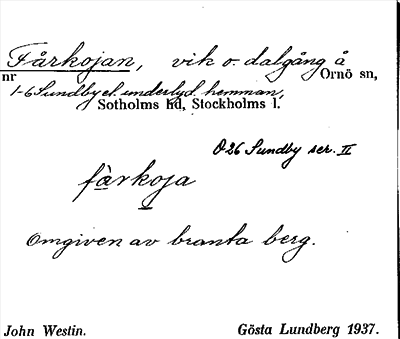 Fårkojan, vik o. dalgång å
nr Ornö sn,
1-6 Sundby el. underlyd. hemman,
Sotholms hd, Stockholms l.
O26 Sundby ser. II
fàrkoja
Omgiven av branta berg.
John Westin. Gösta Lundberg 1937.